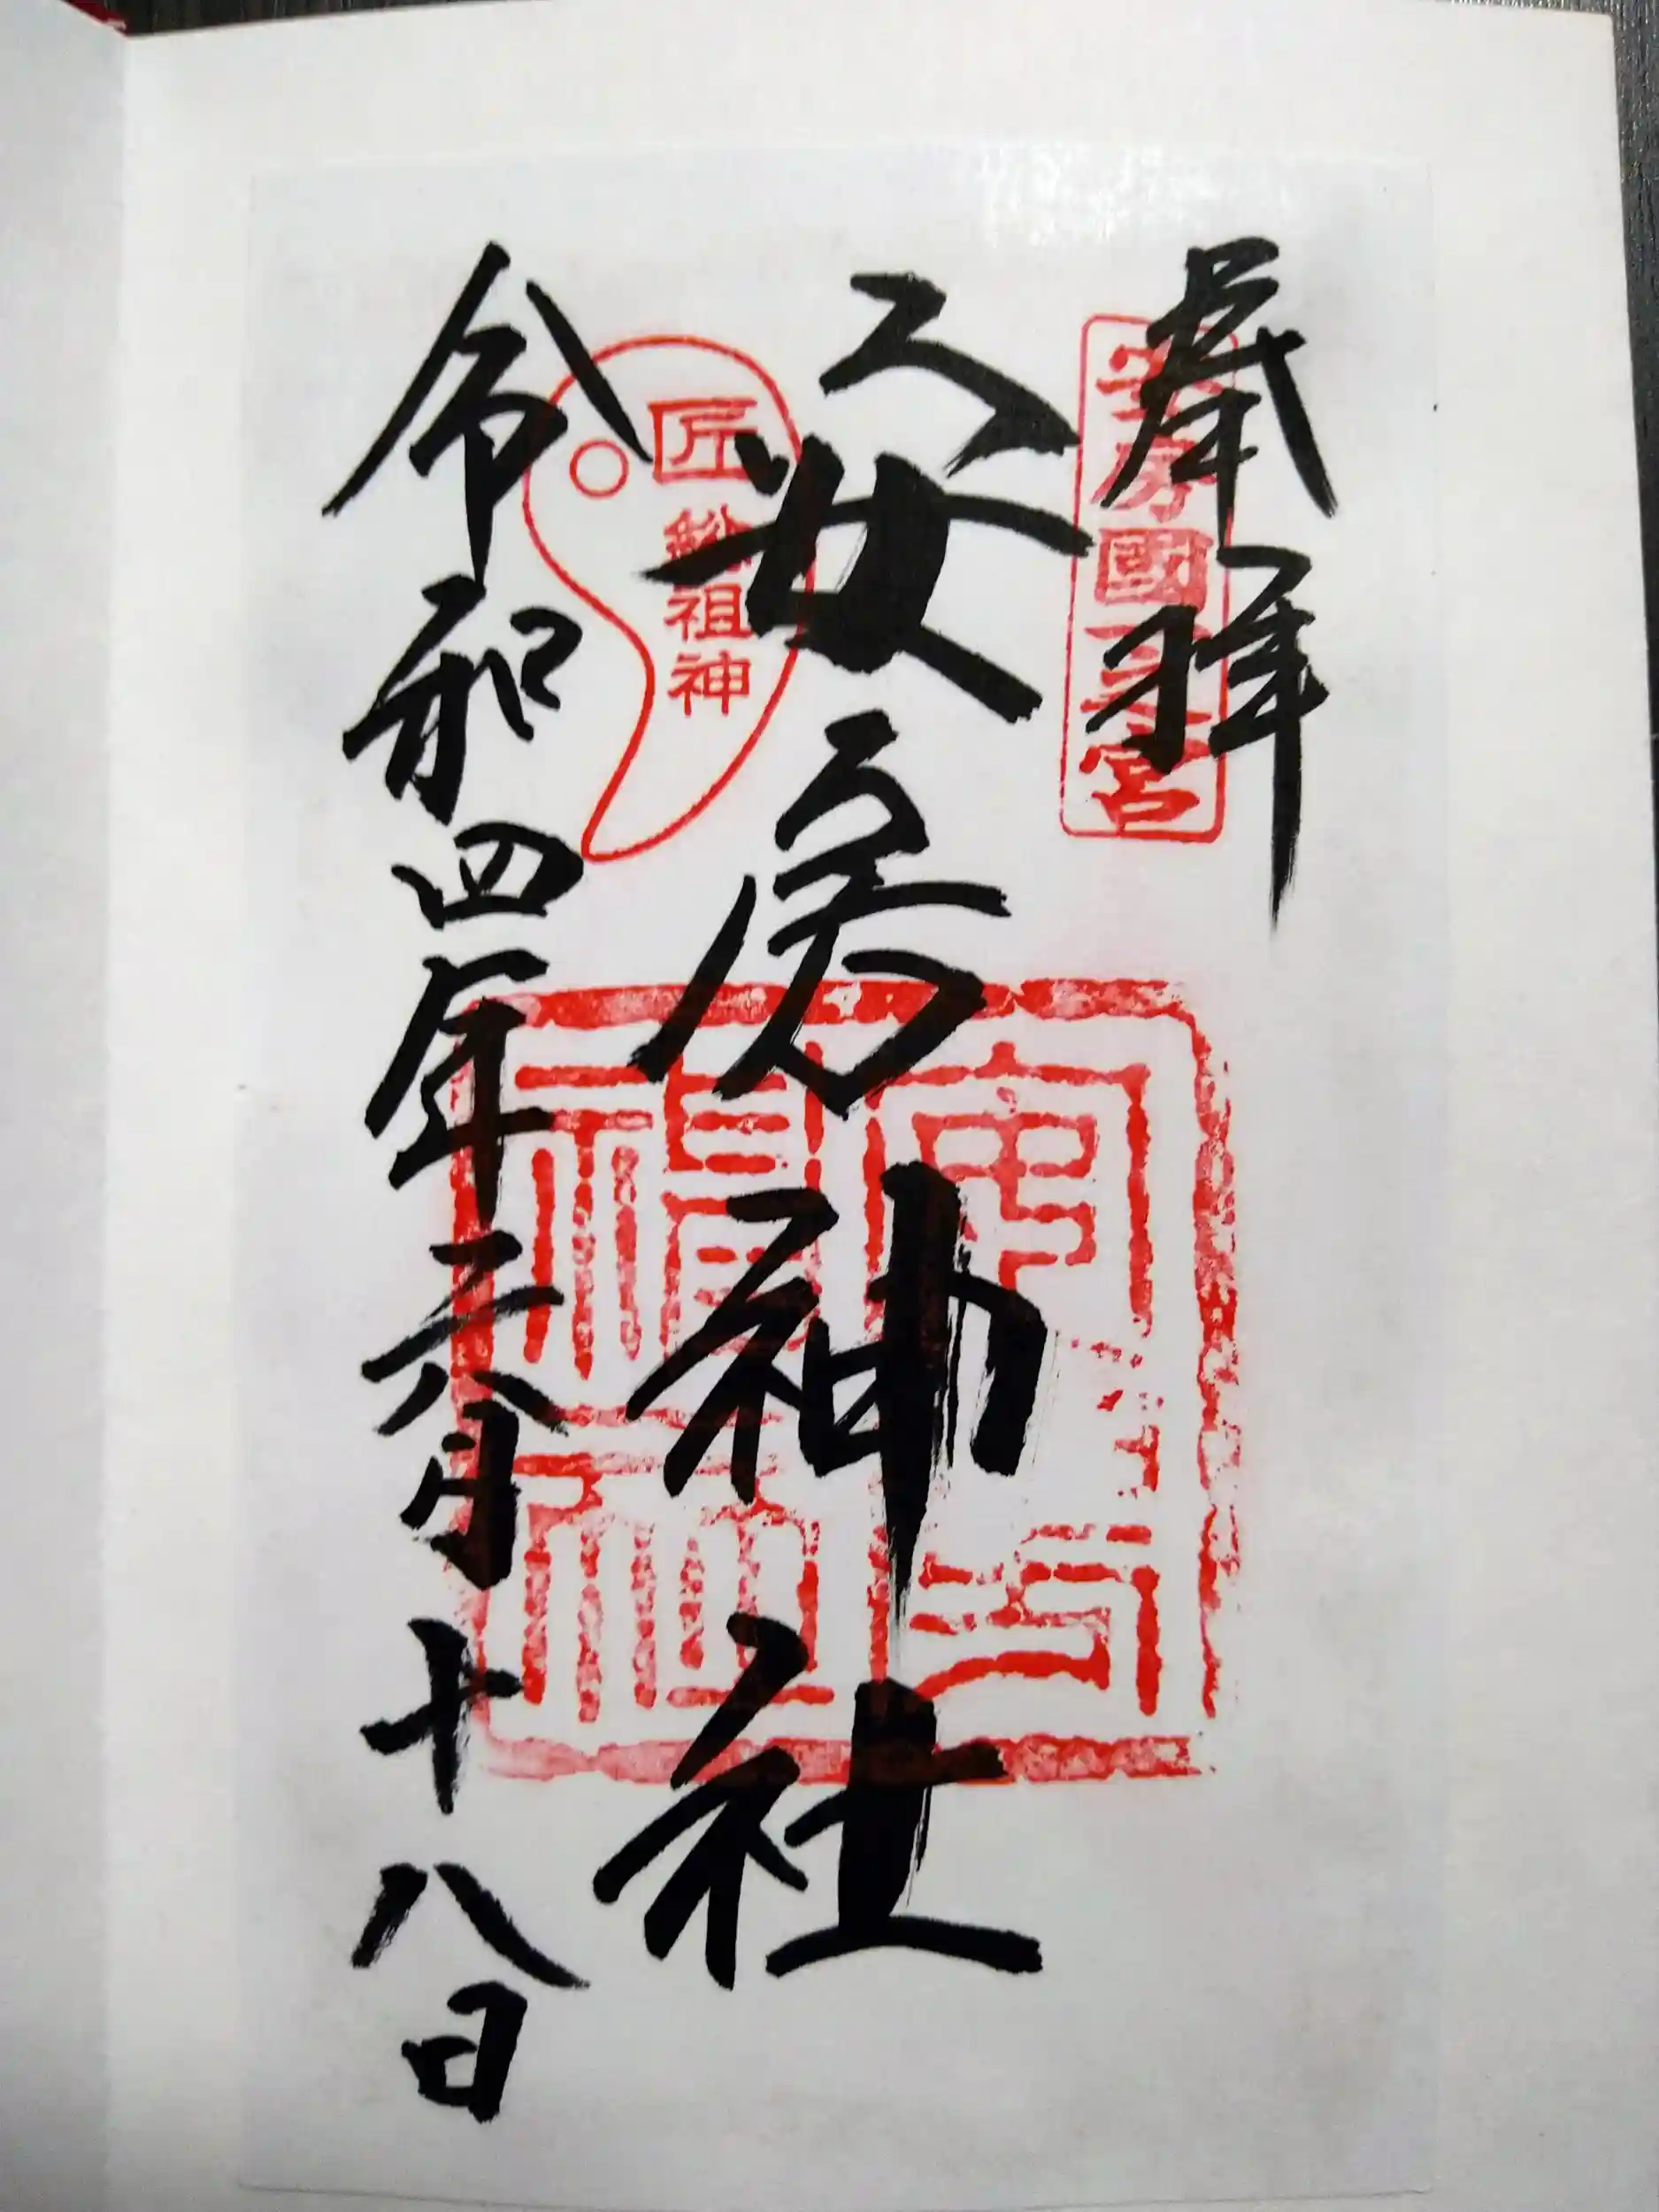 奉拝
安房國一之宮
安房神社
匠総祖神
令和四年六月十八日